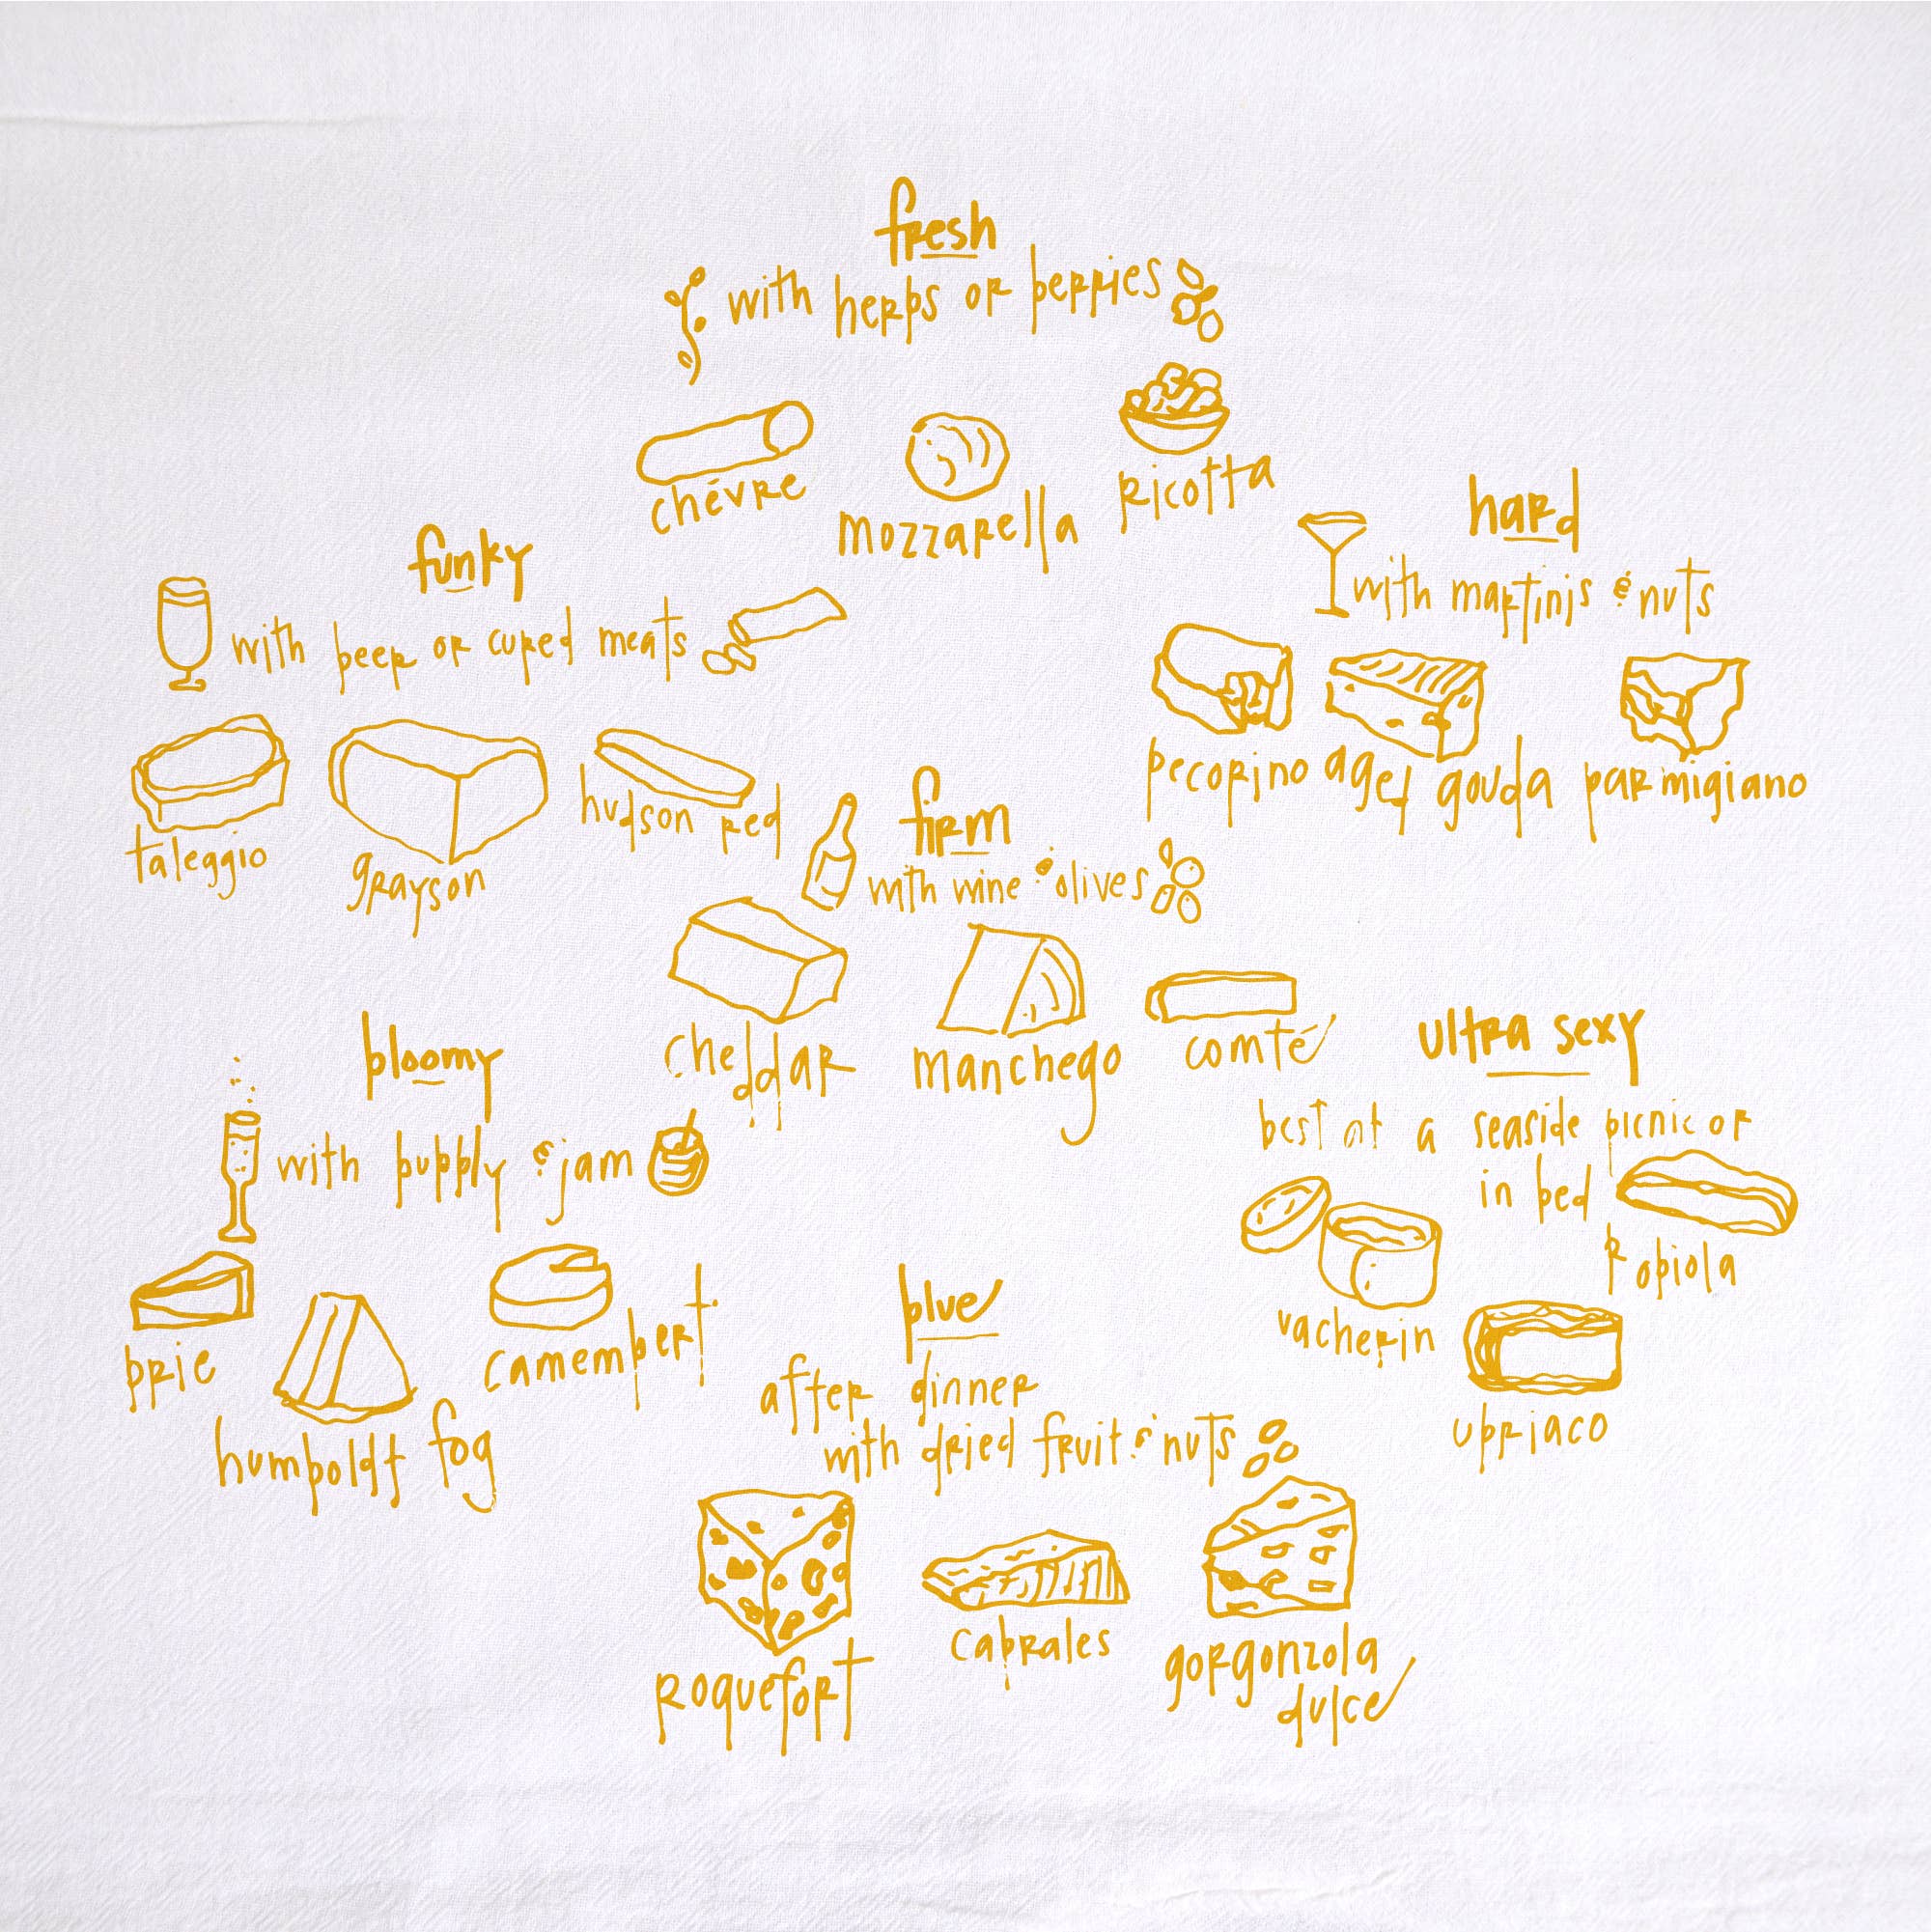 fresh
with herbs or berries
chévre
mozzarella
ricotta
funky
with beer or cured meats
taleggio
grayson
hudson red
hard
with martinis & nuts
pecorino
aged gouda
parmigiano
firm
with wine & olives
cheddar
manchego
comté
bloomy
with bubbly & jam
brie
humboldt fog
camembert
ultra sexy
best at a seaside picnic or
in bed
robiola
vacherin
ubriaco
blue
after dinner
with dried fruit & nuts
roquefort
cabrales
gorgonzola
dulce